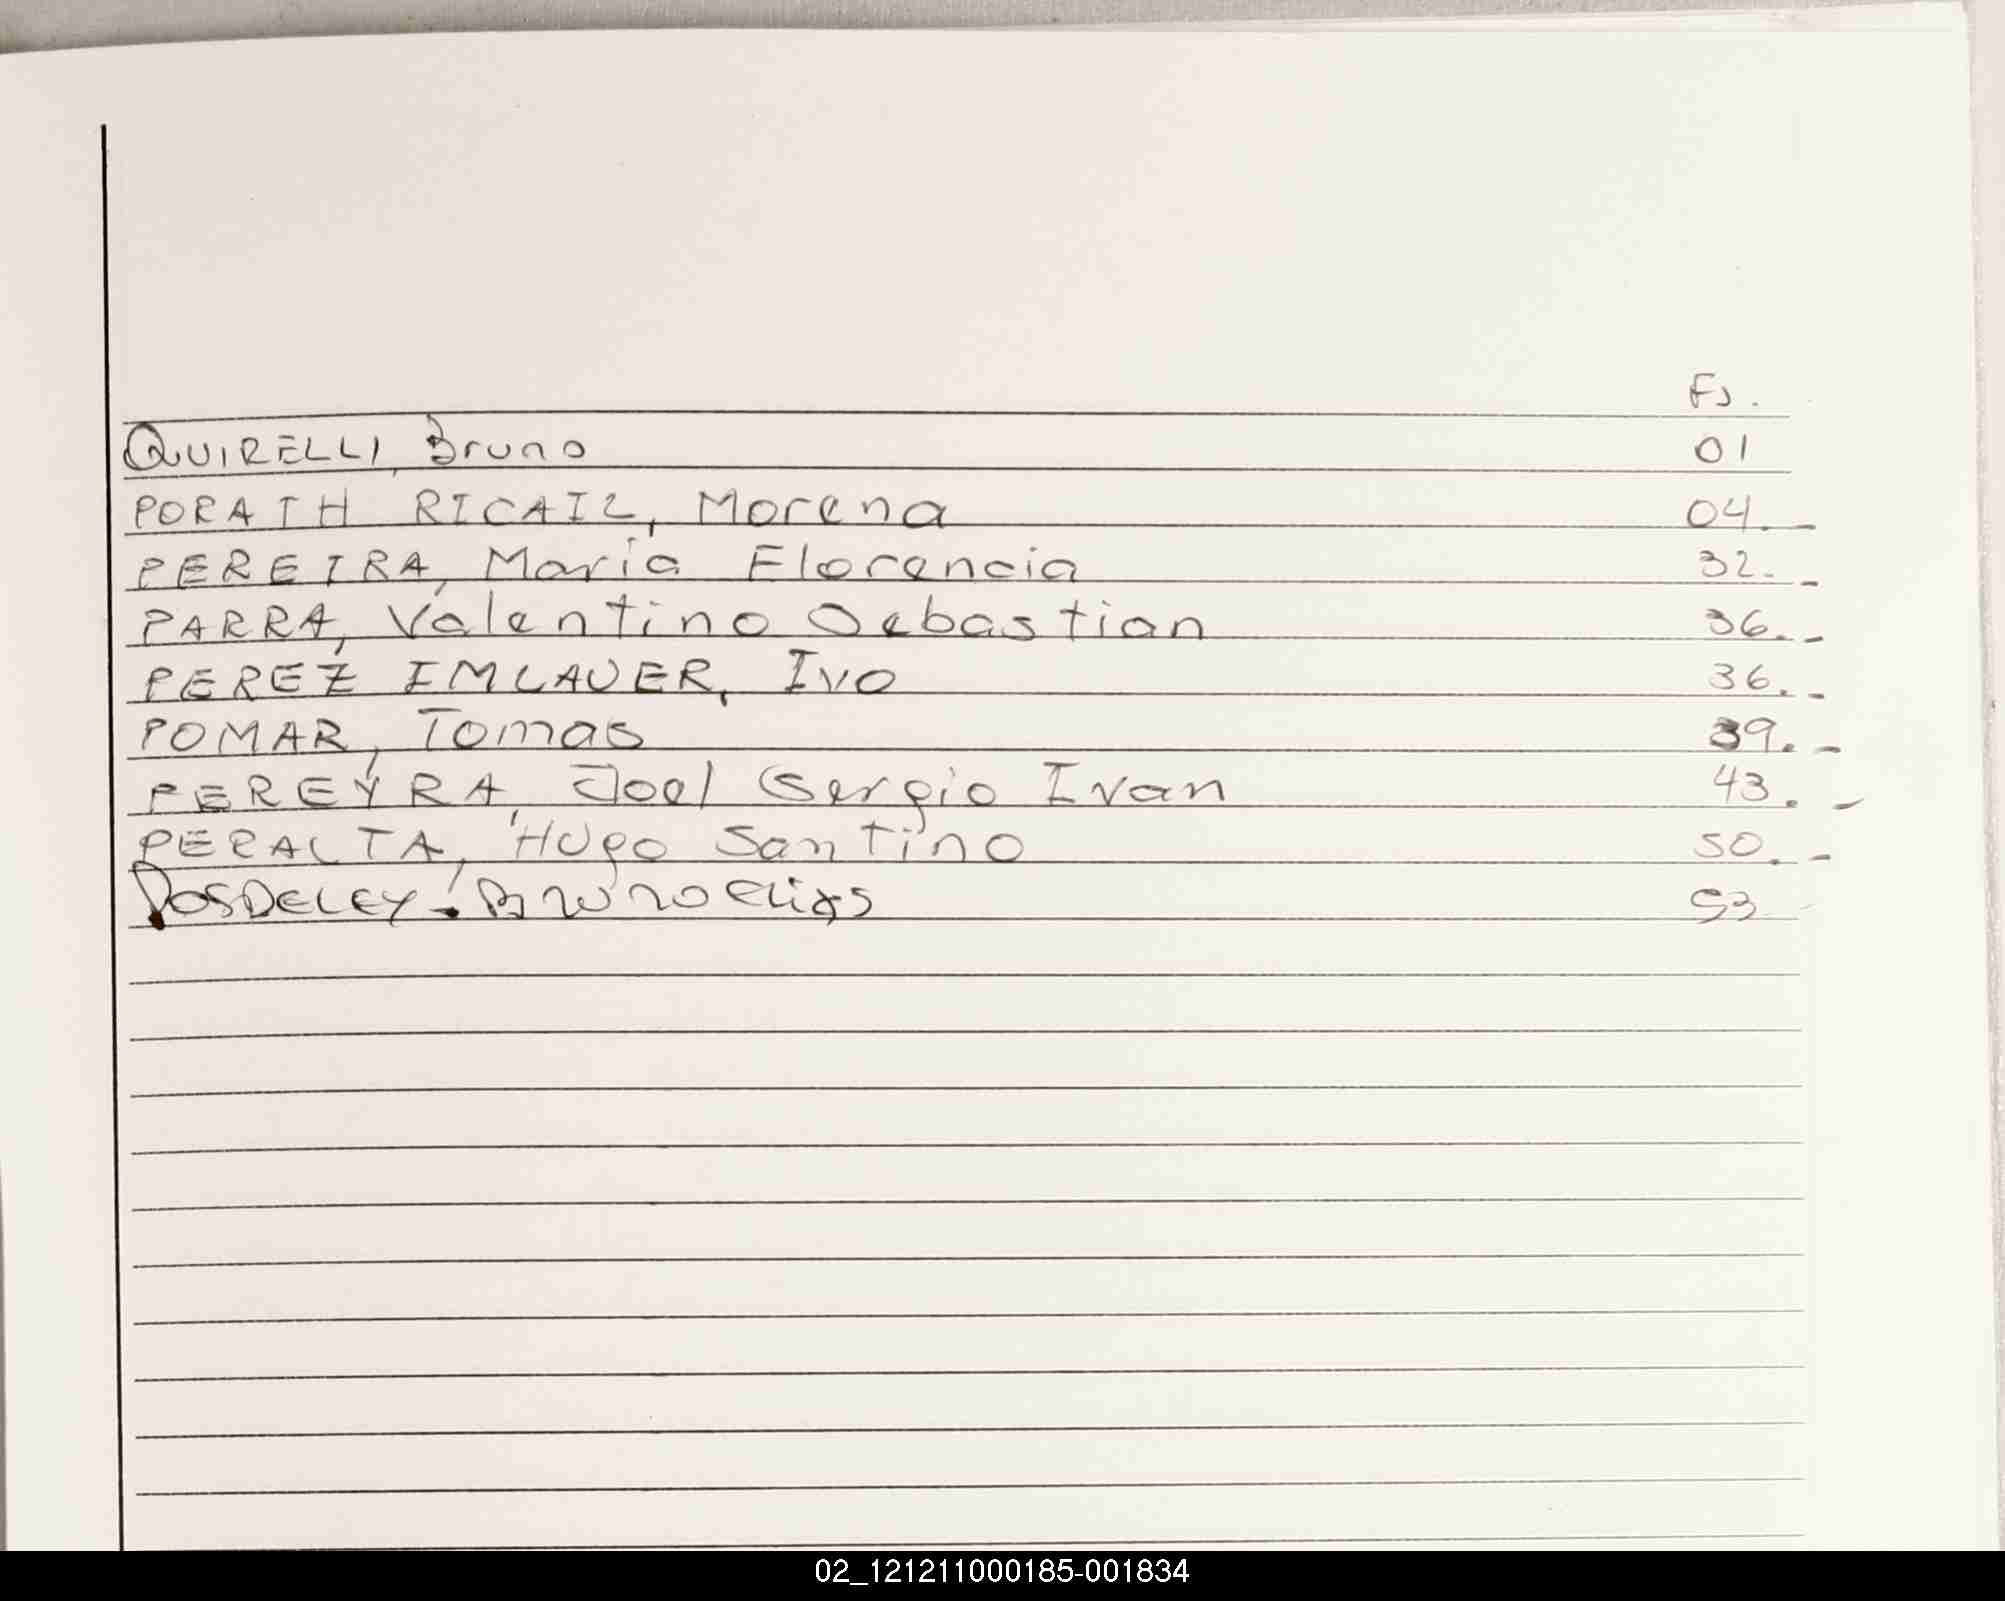 Fs.
QUIRELLI, Bruno 01
PORATH RICAIZ, Morena 04.-
PEREIRA, Maria Florencia 32.-
PARRA, Valentino Sebastian 36.-
PEREZ IMLAUER, Ivo 36.-
POMAR, Tomas 39.-
PEREYRA, Joel Sergio Ivan 43.-
PERALTA, Hugo Santino 50.-
POSDELEY. Bruno Elias 53
02_121211000185-001834